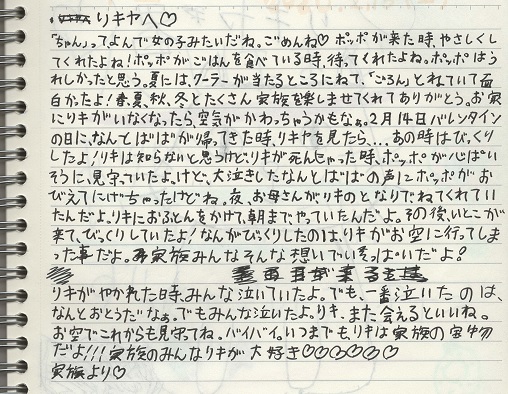 リキヤへ♡
「ちゃん」って、よんで女の子みたいだね。ごめんね♡ポッポが来た時、やさしくし
てくれたよね!ポッポがごはんを食べている時、待ってくれたよね。ポッポはう
れしかったと思う。夏には、クーラーが当たるところにねて、「ごろん」とねていて面
白かったよ!春、夏、秋、冬とたくさん家族を楽しませてくれてありがとう。お家
にリキがいなくなったら、空気がかわっちゃうかもなぁ。2月14日バレンタイン
の日に、なんとばばが帰ってきた時、リキヤを見たら....あの時はびっくり
したよ!リキは知らないと思うけど、リキが死んじゃった時、ポッポが心ぱい
そうに、見守っていたよ。けど、大泣きしたなんとばばの声にポッポがお
びえてにげちゃったけどね。夜、お母さんがリキのとなりでねてくれてい
たんだよ。リキにおふとんをかけて、朝まで、やっていたんだよ。その後、いとこが
来て、びっくりしていたよ!なんがびっくりしたのは、リキがお空に行ってしま
った事だよ。家族みんなそんな想いでいっぱいだよ!
リキがやかれた日時、みんな泣いていたよ。でも、一番泣いたのは、
なんとおとうだなぁ。でもみんな泣いたよ。リキ、また会えるといいね。
お空でこれからも見守ってね。バイバイ。いつまでも、リキは家族の宝物
だよ!!!家族のみんなリキが大好き♡♡♡♡♡♡
家族より♡